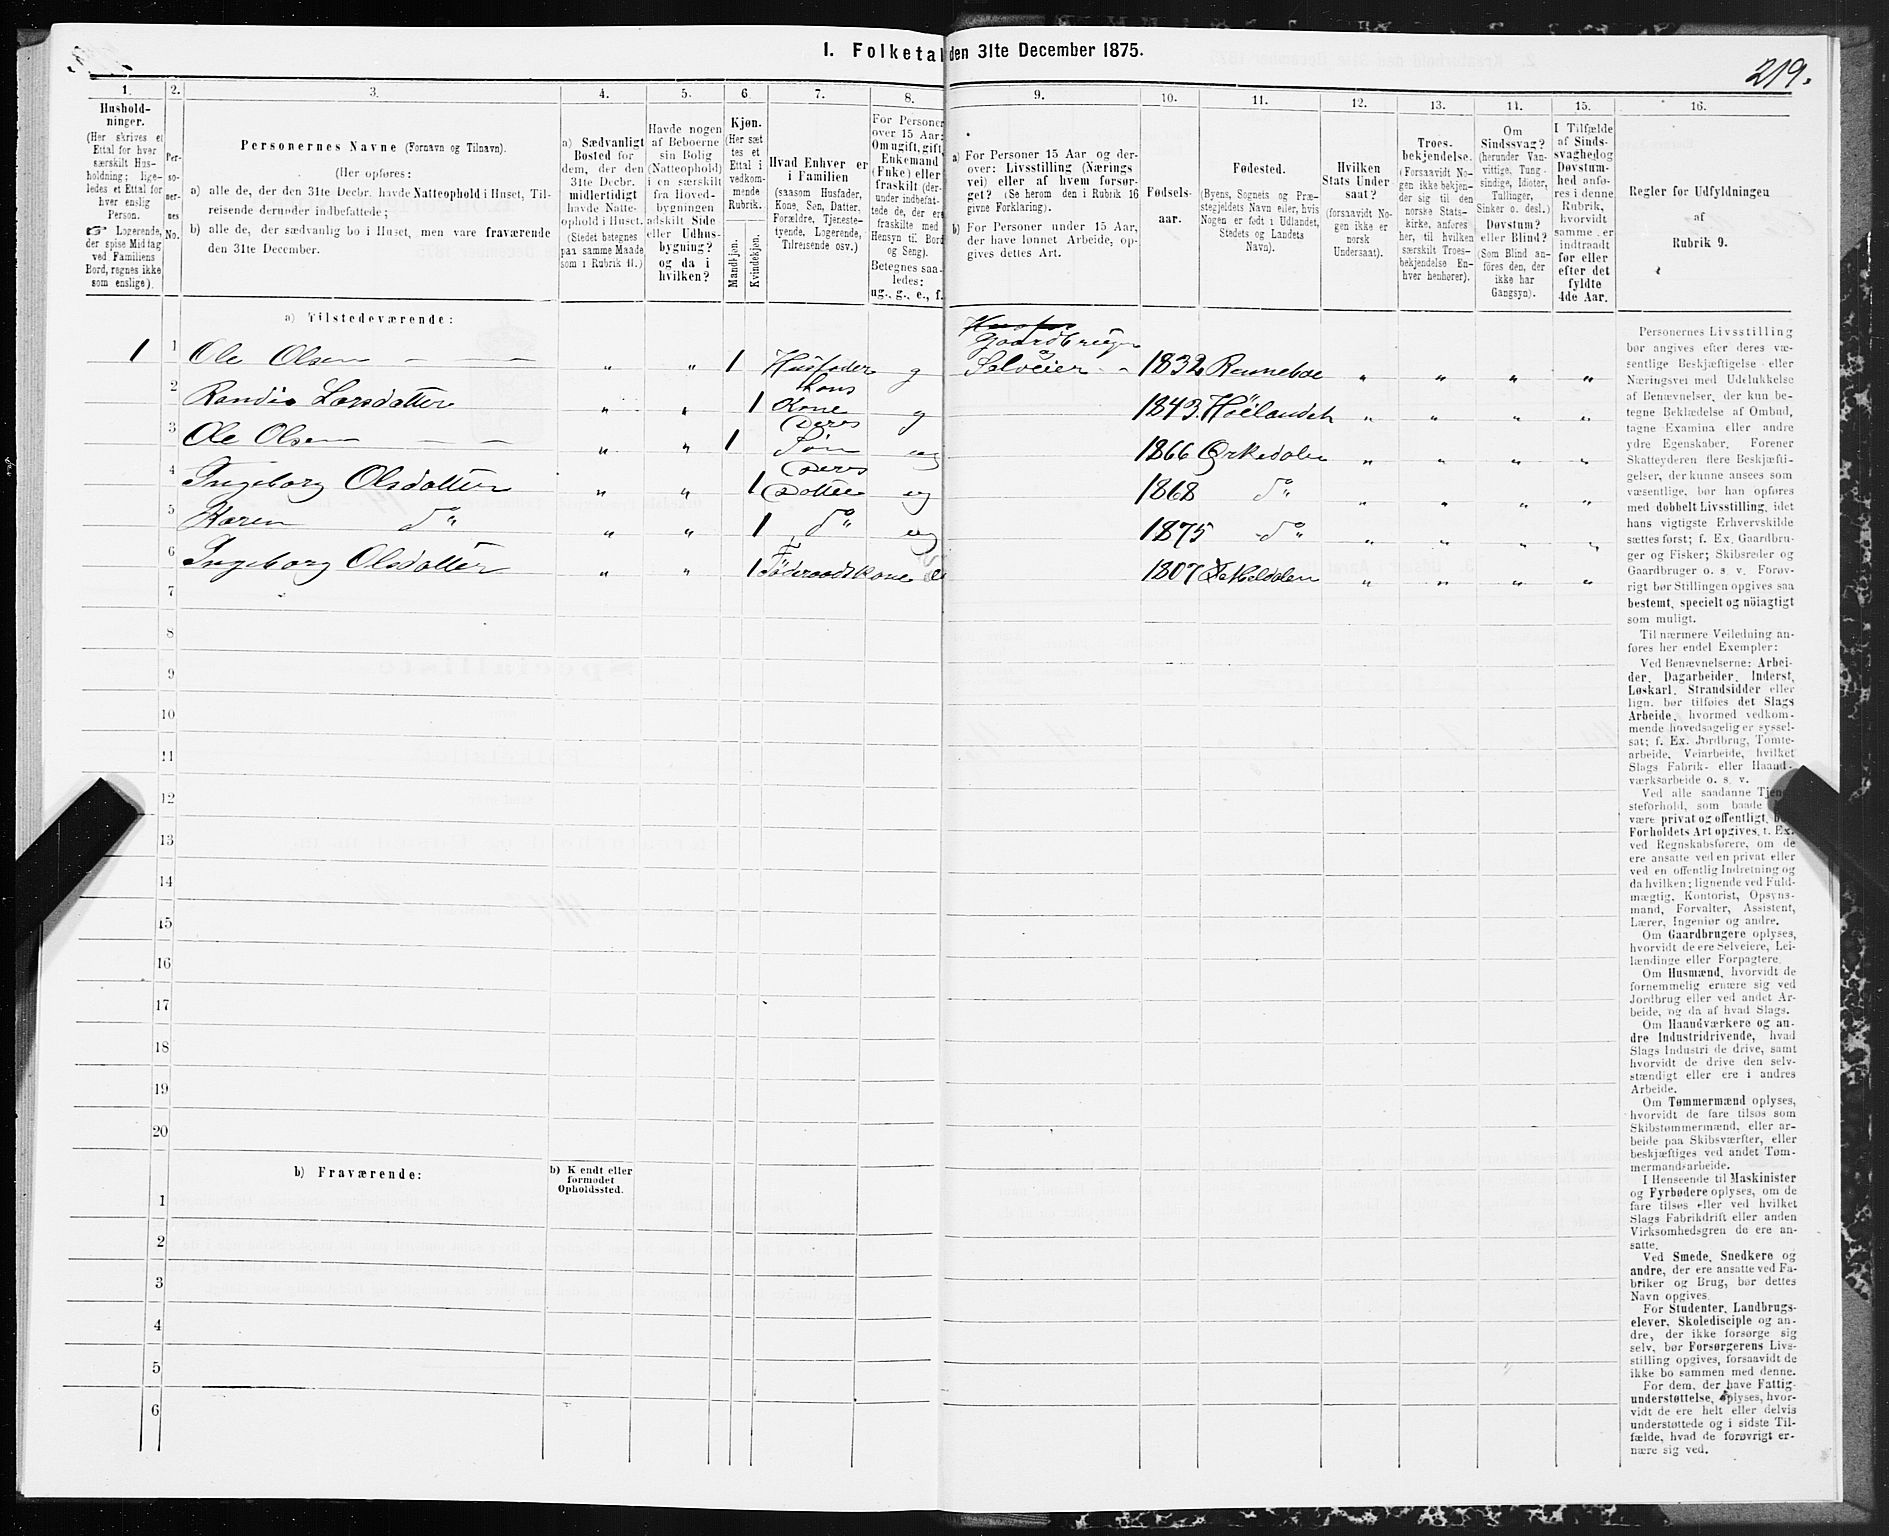 I. Folketal den 31te December 1875.
219.
1.
Hushold-
ninger.
(Her skrives et
Ettal for hver
særskilt Hus-
holdning; lige-
ledes et Ettal for
hver enslig
Person.
Logerende,
der spise Middag
ved Familiens
Bord, regnes ikke
som enslige).
2.
Per-
so-
ner-
nes
No.
3.
Personernes Navne (Fornavn og Tilnavn).
(Her opføres:
a) alle de, der den 31te Decbr. havde Natteophold i Huset, Til-
reisende derunder indbefattede;
b) alle de, der sædvanlig bo i Huset, men vare fraværende
den 31te December.
4.
a) Sædvanligt
Bosted for
dem, der den
31te Decbr.
midlertidigt
havde Natte-
ophold i Huset.
(Stedet betegnes
paa samme Maade
som i Rubrik 11.)
5.
Havde nogen
af Beboerne
sin Bolig
(Natteophold)
i en særskilt
fra Hoved-
bygningen
adskilt Side
eller Udhus-
bygning?
og da i
hvilken?
6.
Kjøn.
(Her sæt-
tes et
Ettal i
vedkom-
mende
Rubrik.
Mandkjøn.
Kvindekjøn.
7.
Hvad Enhver er
i Familien
(saasom Husfader,
Kone, Søn, Datter,
Forældre, Tjeneste-
tyende, Logerende,
Tilreisende osv.)
8.
For Personer
over 15 Aar:
Om ugift, gift,
Enkemand
(Enke) eller
fraskilt (der-
under indbefat-
tede de, der ere
fraskilte med
Hensyn til Bord
og Seng).
Betegnes saa-
ledes:
ug., g., e., f.
9.
a) For Personer 15 Aar og der-
over: Livsstilling (Nærings-
vei) eller af hvem forsør-
get? (Se herom den i Rubrik 16
givne Forklaring).
b) For Personer under 15 Aar,
der have lønnet Arbeide, op-
gives dettes Art.
10.
Fødsels-
aar.
11.
Fødested.
(Byens, Sognets og Præ-
stegjeldets Navn eller, hvis
Nogen er født i Udlandet,
Stedets og Landets
Navn).
12.
Hvilken
Stats Under-
saat?
(forsaavidt No-
gen ikke er
norsk
Undersaat).
13.
Troes-
bekjendelse.
(Forsaavidt No-
gen ikke bekjen-
der sig til den
norske Stats-
kirke, anføres
her, til hvilken
særskilt Troes-
bekjendelse En-
hver henhører).
14.
Om
Sindssvag?
(herunder Van-
vittige, Tung-
sindige, Idioter,
Tullinger,
Sinker o. desl.)
Døvstum?
eller Blind?
(Som Blind an-
føres den, der
ikke har
Gangsyn).
15.
I Tilfælde
af Sinds-
svaghed og
Døvstum-
hed anfø-
res i denne
Rubrik,
hvorvidt
samme er
indtraadt
før eller
efter det
fyldte
4de Aar.
16.
Regler for Udfyldningen
af
Rubrik 9.
a) Tilstedeværende:
1 1 Ole Olsen — — " " 1 Husfader g Gaardbruger og Selveier 1832 Renneboe " " " "
2 Randi Larsdatter " " 1 Hans Kone g 1843. Høilandet " " " "
3 Ole Olsen — — " " 1 Deres Søn ug 1866 Ørkedalen " " " "
4 Ingeborg Olsdatter " " 1 Deres Datter ug 1868 do " " " "
5 Karen do " " 1 do ug 1875 do " " " "
6 Ingeborg Olsdatter " " 1 Føderaadskone e 1807 Meldalen " " " "
7
8
9
10
11
12
13
14
15
16
17
18
19
20
b) Fraværende:
b) Kjendt eller
formodet
Opholdssted.
1
2
3
4
5
6
Personernes Livsstilling
bør angives efter deres væ-
sentlige Beskjæftigelse eller
Næringsvei med Udelukkelse
af Benævnelser, der kun be-
tegne Beklædelse af Ombud,
tagne Examina eller andre
ydre Egenskaber. Forener
Skatteyderen flere Beskjæfti-
gelser, der kunne ansees som
væsentlige, bør han opføres
med dobbelt Livsstilling, idet
hans vigtigste Erhvervskilde
sættes først; f. Ex. Gaardbru-
ger og Fisker; Skibsreder og
Gaardbruger o. s. v. Forøv-
rigt bør Stillingen opgives saa
bestemt, specielt og nøiagtigt
som muligt.
Til nærmere Veiledning an-
føres her endel Exempler:
Ved Benævnelserne: Arbei-
der, Dagarbeider, Inderst,
Løskarl, Strandsidder eller
lign. bør tilføies det Slags
Arbeide, hvormed vedkom-
mende hovedsagelig er syssel-
sat; f. Ex. Jordbrug, Tomte-
arbeide, Veiarbeide, hvilket
Slags Fabrik- eller Haand-
værksarbeide o. s. v.
Ved alle saadanne Tjene-
steforhold, som baade
være privat og offentligt, bør
Forholdets Art opgives, t. Ex.
ved Regnskabsførere, om de
ere ansatte ved en privat eller
ved en offentlig Indretning og
da hvilken; lignende ved Fuld-
mægtig, Kontorist, Opsyns-
mand, Forvalter, Assistent,
Lærer, Ingeniør og andre.
Om Gaardbrugere oplyses,
hvorvidt de ere Selveiere, Lei-
lændinge eller Forpagtere.
Om Husmænd, hvorvidt de
fornemmelig ernære sig ved
Jordbrug eller ved andet Ar-
beide, og da af hvad Slags.
Om Haandværkere og an-
dre Industridrivende, hvad
Slags Industri de drive, samt
hvorvidt de drive den selv-
stændigt eller ere i andres
Arbeide.
Om Tømmermænd oplyses,
hvorvidt de fare tilsøs som
Skibstømmermænd, eller ar-
beide paa Skibsværfter, eller
beskjæftiges ved andet Tøm-
mermandsarbeide.
I Henseende til Maskinister
og Fyrbødere oplyses, om de
fare tilsøs eller ved hvilket
Slags Fabrikdrift eller anden
Virksomhedsgren de ere an-
satte.
Ved Smede, Snedkere og
andre, der ere ansatte ved Fa-
briker og Brug, bør dettes
Navn opgives.
For Studenter, Landbrugs-
elever, Skoledisciple og an-
dre, der ikke forsørge sig
selv, bør Forsørgerens Livs-
stilling opgives, forsaavidt de
ikke bo sammen med denne.
For dem, der have Fattig-
understøttelse, oplyses, hvor-
vidt de ere helt eller delvis
understøttede og i sidste Til-
fælde, hvad de forøvrigt er-
nære sig ved.